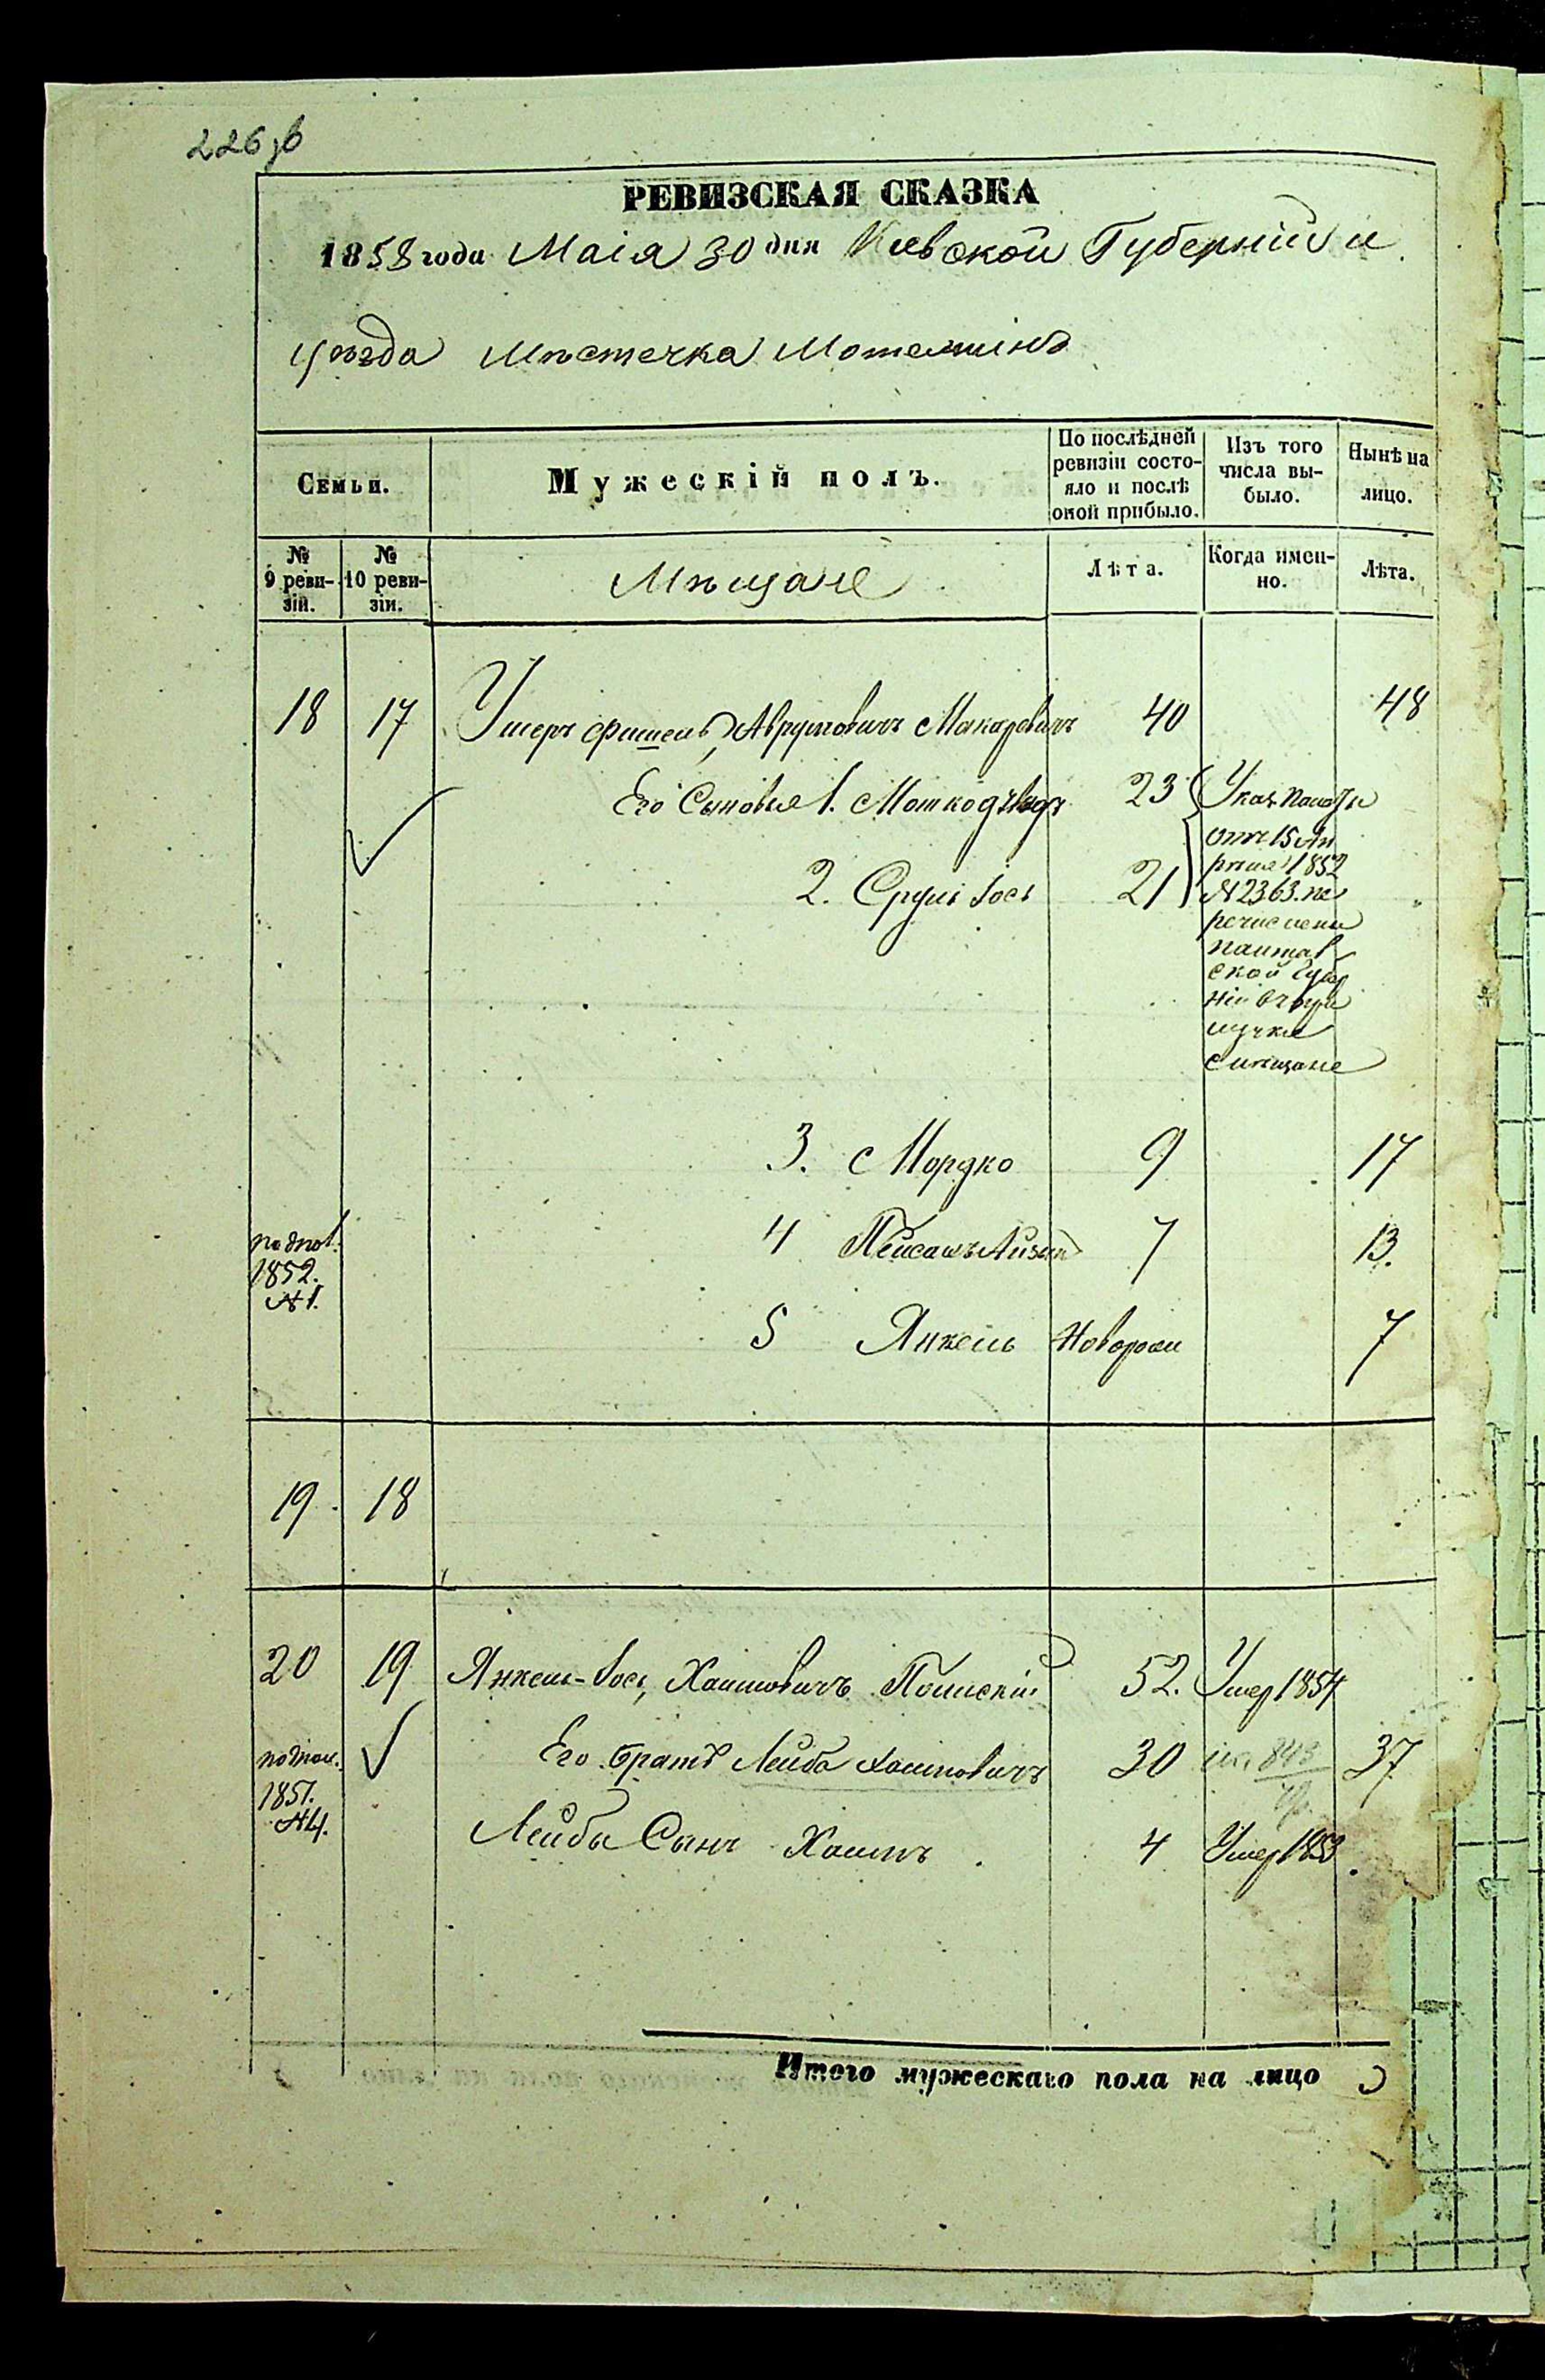 226 об
РЕВИЗСКАЯ СКАЗКА
1858 года Маія 30 дня Кіевской Губерніи и
уѣзда Мѣстечка
Семьи.
Мужескій полъ.
По послѣдней ревизіи состо-
яло и послѣ оной прибыло.
Изъ того числа вы-
было.
Нынѣ на лицо.
№ 9 реви-
зіи.
№ 10 реви-
зіи.
Мѣщане
Лѣта.
Когда имен-
но.
Лѣта.
18 17 Ушеръ Фишель Аврумовичъ Макаревичъ 40 48
Его Сыновья 1. Мошко 23
2. Сруль Іось 21
Указ. Палаты
отъ 15 Ап
рѣля 1852
№ 2363. пе
речислены
ской Губер
мѣщане
3. Мордко 9 17
4 Пейсахъ 7 13.
1852.
№ 1.
5 Янкель Новорож 7
19 18
20 19 Янкель-Іось Хаимовичъ 52. Умер 1854
1851.
№ 4.
Его братъ Лейба Хаимовичъ 30 37
Лейбы Сынъ Хаимъ 4 Умер 1853
Итого мужескаго пола на лицо 5